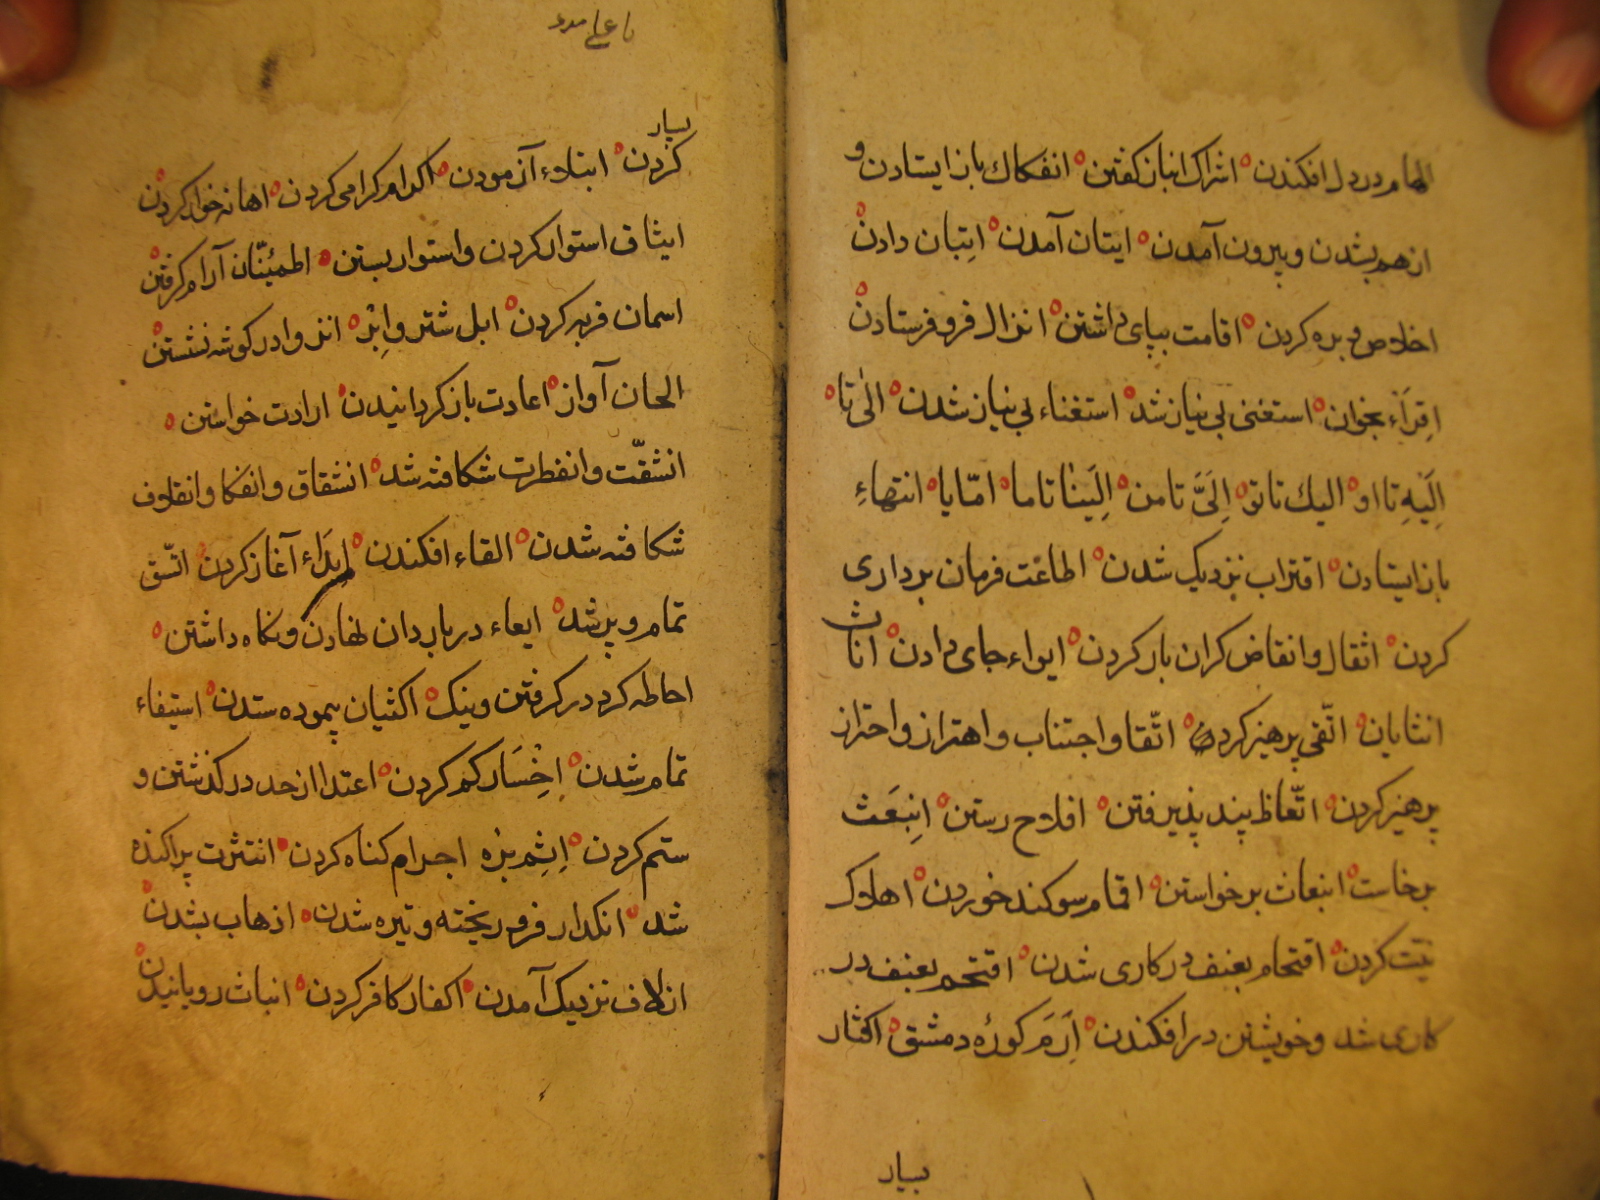 الهام در دل افکندن اشراک انباز کفتن انفکاک باز ایستادن و
از هم بشدن و بیرون آمدن ایتان آمدن ایتان دادن
اخلاص ویژه کردن اقامت بپای داشتن انزال فرو فرستادن
اقرَاء بخوان استغنی بی نیاز شد استغناء بی نیاز شدن الیٰ تا
اِلَیهِ تا او الیک تا تو اِلَیَّ تا من اِلَینا تا ما امّا یا انتهاءِ
باز ایستادن اقتراب نزدیک شدن اطاعت فرمان برداری
کردن اثقال و انقاض کران بار کردن ایواء جای دادن اناث
انثایان اتّقی پرهیز کرد اتّقا و اجتناب و اهتراز و احتراز
پرهیز کردن اتّعاظ پند پذیرفتن افلاح رستن اِنبَعَث
برخاست انبعاث برخواستن اقسام سوکند خوردن اهلاک
نیّت کردن اقتحام بعنف در کاری شدن اقتحم بعنف در
کاری شد و خویشتن در افکندن اِرَمَ کورهٔ دمشق اکثار
بسیار
یا علی مدد
بسیار
کردن ابتلاء آزمودن اکرام کرامی کردن اهانه خوار کردن
ایثاق استوار کردن و استوار بستن اطمینّان آرام کرفتن
اسمان فربه کردن ابل شتر و ابر انزوا در کوشه نشستن
الحان آواز اعادت باز کردانیدن ارادت خواستن
انشقّت و انفطرت شکافته شد انشقاق و انفکا و انفلاق
شکافته شدن القاء افکندن اِبدَاء آغاز کردن اتّسق
تمام و پر شد ایعاء در باردان نهادن و نکاه داشتن
احاطه کرد در کرفتن و نیک اکتیان پیموده ستدن استیفاء
تمام شدن اِخْسَار کم کردن اعتدا از حد در کذشتن و
ستم کردن اِثم بزه اجرام کناه کردن انتثرت پراکنده
شد انکدار فرو ریخته و تیره شدن اذهاب بشدن
ازلاف نزدیک آمدن اکفار کافر کردن انبات رویانیدن